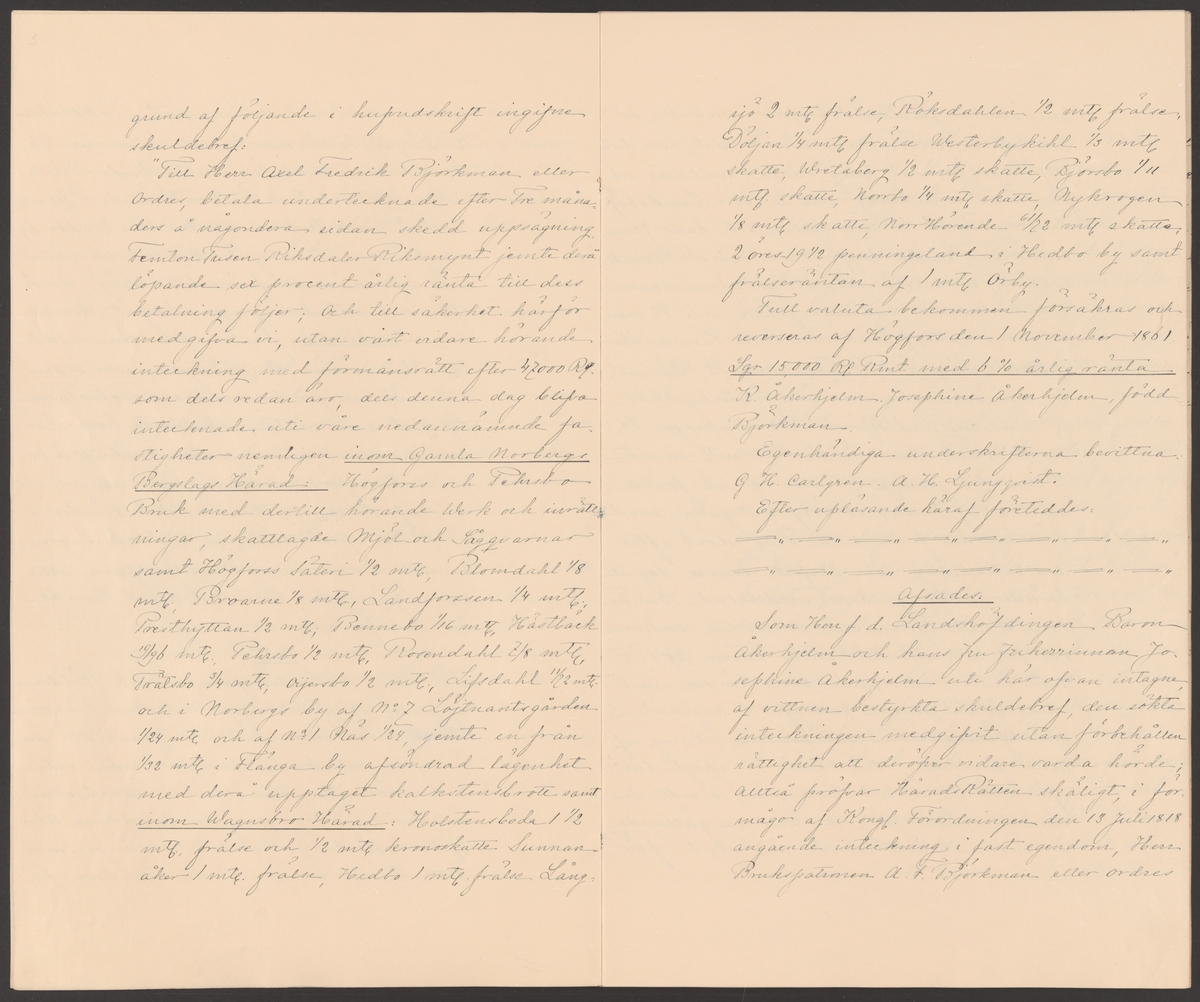 grund af följande i hufvudskrift ingifne
skuldebref:
"Till Herr Axel Fredrik Björkman eller
Ordres, betala undertecknade efter Tre måna-
ders å någondera sidan skedd uppsägning
Femton Tusen Riksdaler Riksmynt jemte derå
löpande sex procent årlig ränta till dess
betalning följer; Och till säkerhet härför
medgifva vi, utan vårt vidare hörande
inteckning med förmånsrätt efter 47000 Rd.
som dels redan äro, dels denna dag blifva
intecknade uti våre nedannämnde fa-
stigheter nemligen inom Gamla Norbergs
Bergslags Härad: Högfors och Pehrsbo
Bruk med dertill hörande Werk och inrätt-
ningar, skattlagde Mjöl och Sågqvarnar
samt Högforss Säteri 1/2 mtl, Blomdahl 1/8
mtl, Broarne 1/8 mtl, Landforssen 1/4 mtl,
Presthyttan 1/2 mtl, Bennebo 1/16 mtl, Hästbäck
19/96 mtl. Pehrsbo 1/2 mtl, Rosendahl 2/8 mtl,
Trälsbo 3/4 mtl, Oijersbo 1/2 mtl, Lifsdahl 11/72 mtl
och i Norbergs by af No 7 Löjtnantsgården
1/24 mtl och af No 1 Näs 1/24, jemte en från
1/32 mtl i Flänga by afsöndrad lägenhet
med derå upptaget kalkstensbrott samt
inom Wagnsbro Härad: Holstensboda 1 1/2
mtl. frälse och 1/2 mtl kronoskatte Sunnan
åker 1 mtl. frälse, Hedbo 1 mtl. frälse Lång-
sjö 2 mtl frälse, Röksdahlen 1/2 mtl frälse,
Döljan 1/4 mtl frälse Westerbykihl 1/3 mtl
skatte, Wretaberg 1/2 mtl skatte, Björsbo 1/11
mtl. skatte, Norrbo 1/4 mtl skatte, Nykrogen
1/8 mtl skatte, Norr Hörende 61/72 mtl skatte,
2 öres 19 1/2 penningeland i Hedbo by samt
frälseräntan af 1 mtl Örby.
Full valuta bekommen försäkras och
reverseras af Högfors den 1 November 1861
Sgr 15000 Rd Rmt med 6 % årlig ränta
K. Åkerhjelm, Josephine Åkerhjelm, född
Björkman.
Egenhändiga underskrifterna bevittna:
G H. Carlgren. A. H. Ljungqvist.
Efter upläsande häraf företeddes:
Afsades.
Som Herr f d. Landshöfdingen Baron
Åkerhjelm och hans fru friherrinnan Jo-
sephine Åkerhjelm uti här ofvan intagne,
af vittnen bestyrkta skuldebref, den sökta
inteckningen medgifvit utan förbehållen
rättighet att deröfver vidare varda hörde;
alltså pröfvar HäradsRätten skäligt, i för-
mågo af Kongl. Förordningen den 13 Juli 1818
angående inteckning i fast egendom, Herr
Brukspatronen A. F. Björkman eller ordres